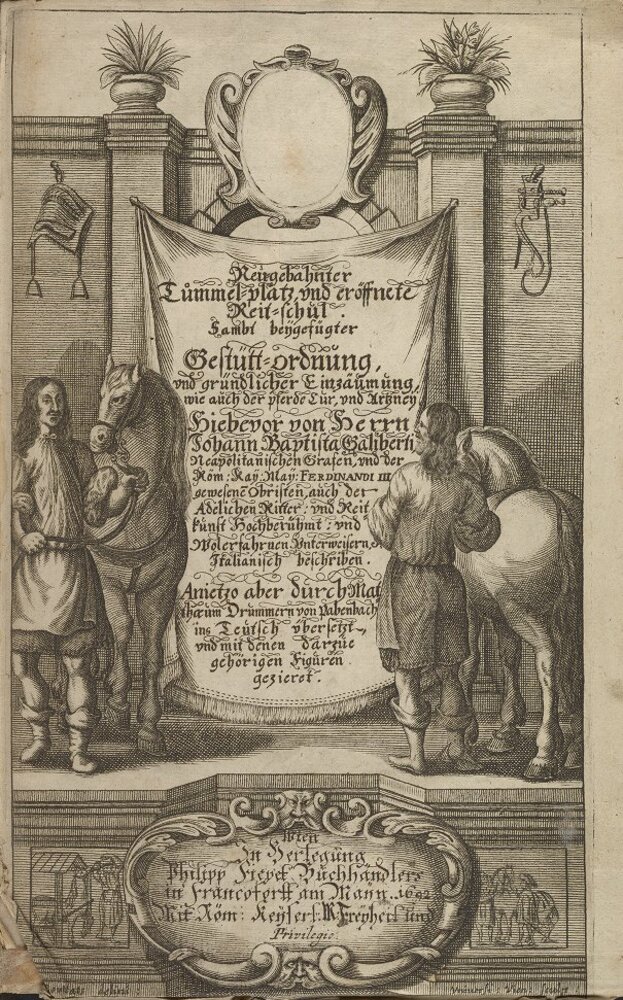 Neugebahnter
Tümmel-platz, vnd eröffnete
Reit-schul.
Sambt beygefügter
Gestütt-ordnung,
vnd gründlicher Einzäumung,
wie auch der pferde Cur, vnd Artzney
Hiebevor von Herrn
Johann Baptista Galiberti
Neapolitanischen Grafen, vnd der
Röm: Kay: May: FERDINANDI III
gewesene Obristen, auch der
Adelichen Ritter: vnd Reit
kunst Hochberühmt: vnd
Wolerfahrnen Vnterweisern,
Italianisch beschriben.
Anietzo aber durch Mat
thæum Drummern von Pabenbach
ins Teütsch vbersetzt,
vnd mit denen darzue
gehörigen Figüren
gezieret.
Wien
In Verlegung
Philipp Fievet Büchhändlers
in Francofortt am Mayn. 1692
Mit Röm: Keyserl: M Freyheit und
Privilegie:
delini:
sculp